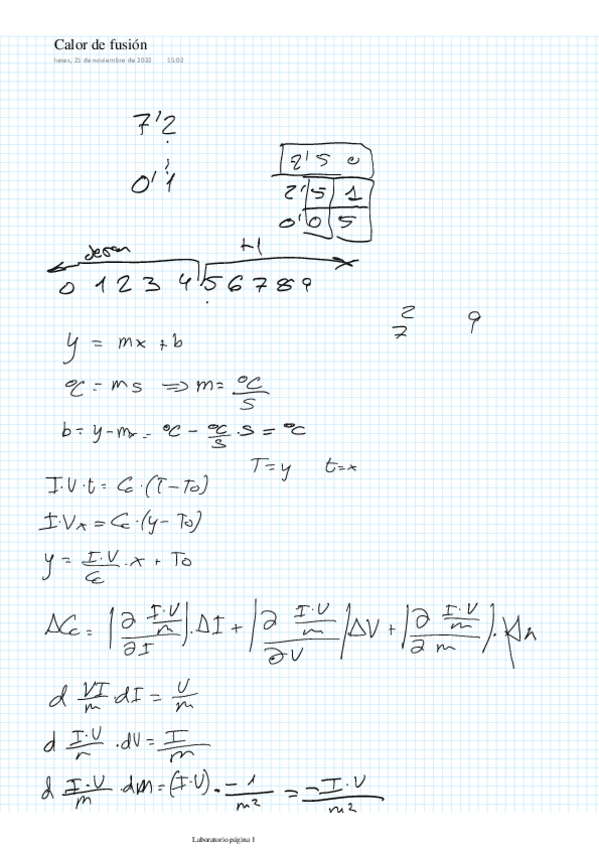 Calor de fusión
lunes, 21 de noviembre de 2022 15:02
7'2
0'1
2'5 0
2'5 1
0'0 5
+1
0 1 2 3 4 5 6 7 8 9
2
7 9
y = mx + b
ºC = m s ⟹ m = ºC/s
b = y - mx = ºC - ºC/s · s = ºC
T = y t = x
I·V·t = Cc·(T-To)
I·Vx = Cc·(y-To)
y = I·V/Cc · x + To
ΔCc = |∂ I·V/m / ∂I|·ΔI + |∂ I·V/m / ∂V|ΔV + |∂ I·V/m / ∂m|·Δm
d VI/m · dI = V/m
d I·V/m · dV = I/m
d I·V/m · dm = (I·V)· -1/m² = -I·V/m²
Laboratorio página 1